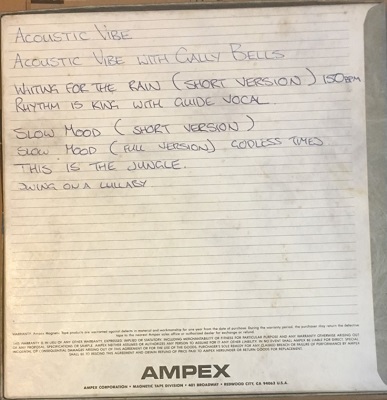 ACOUSTIC VIBE
ACOUSTIC VIBE WITH CALLY BELLS
WAITING FOR THE RAIN (SHORT VERSION) 150 BPM
RHYTHM IS KING WITH GUIDE VOCAL
SLOW MOOD (SHORT VERSION)
SLOW MOOD (FULL VERSION) GODLESS TIMES
THIS IS THE JUNGLE.
SWING ON A LULLABY
AMPEX
AMPEX CORPORATION • MAGNETIC TAPE DIVISION • 401 BROADWAY • REDWOOD CITY, CA 94063 U.S.A.